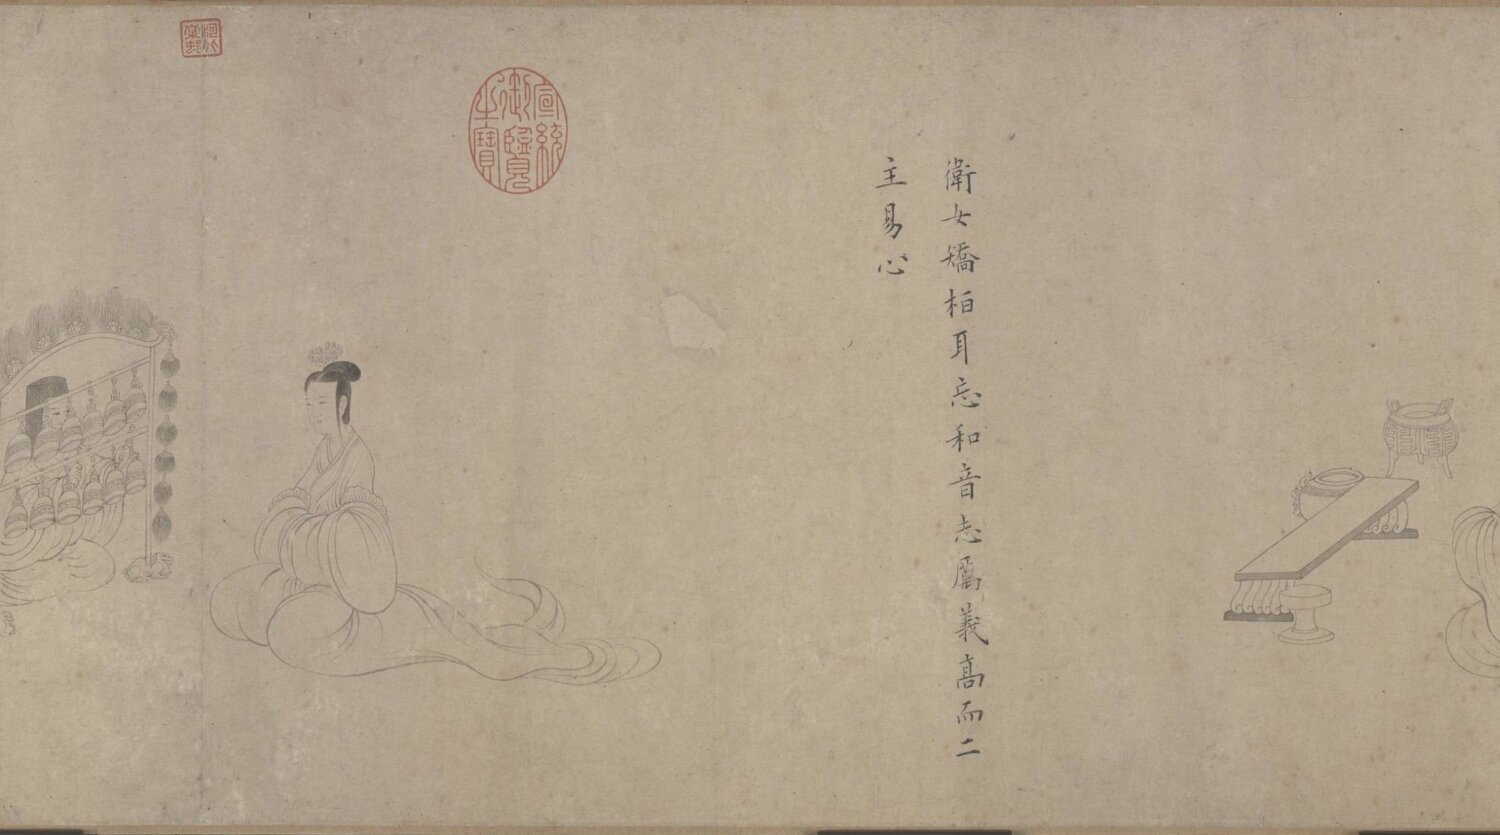 衛女矯栢耳忘和音志厲義髙而二
主易心
宣統
御覽
之寶